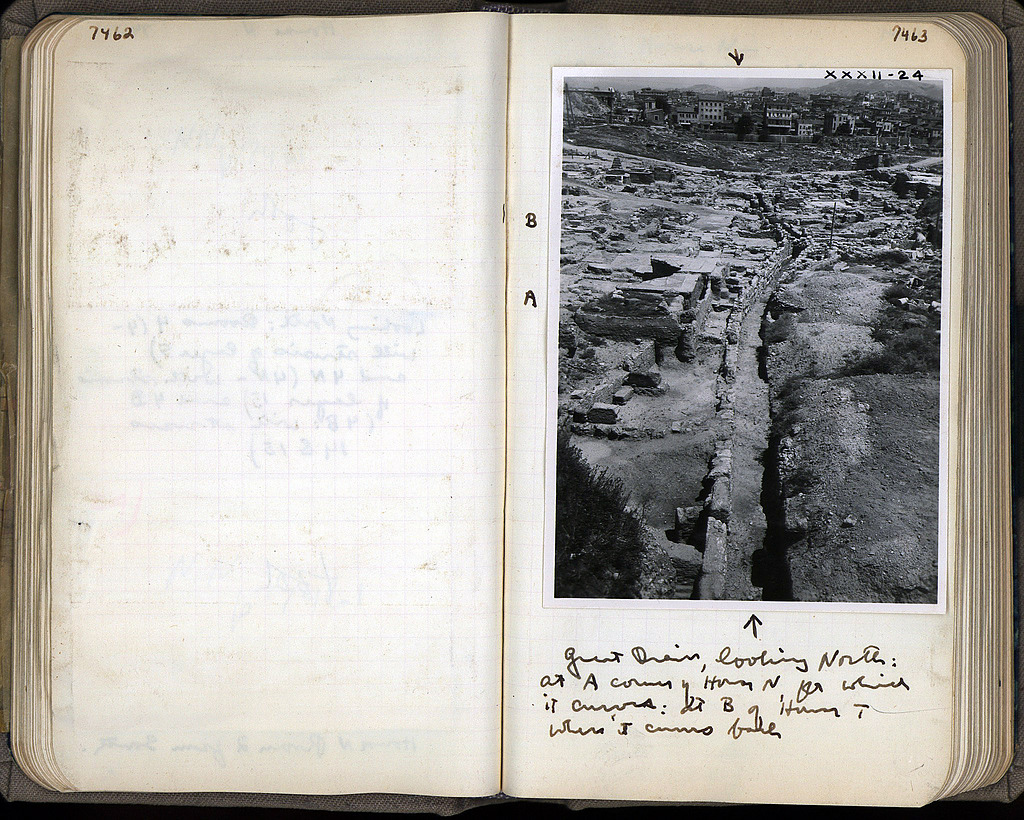 7462
7463
XXXII-24
B
A
Great Drain, looking North:
at A corner of House N, for which
it curves: at B of House T
where it curves back